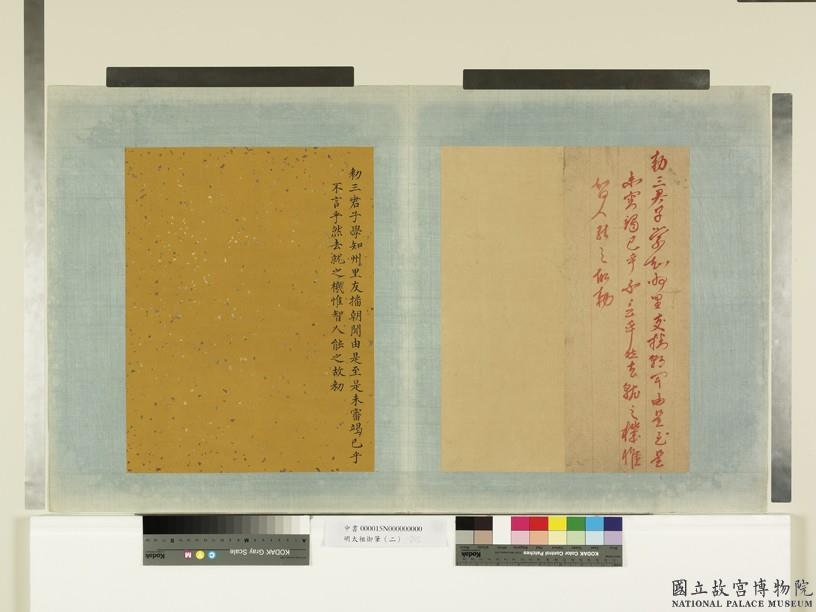 勅三君子學知州里友播朝聞由是至是
未審竭已乎不言乎然去就之機惟
智人能之故勅
勅三君子學知州里友播朝聞由是至是未審竭已乎
不言乎然去就之機惟智人能之故勅
中書 000015N000000000
明太祖御筆(二)
KODAK Gray Scale
Kodak
C Y M
KODAK Color Control Patches
國立故宮博物院
NATIONAL PALACE MUSEUM